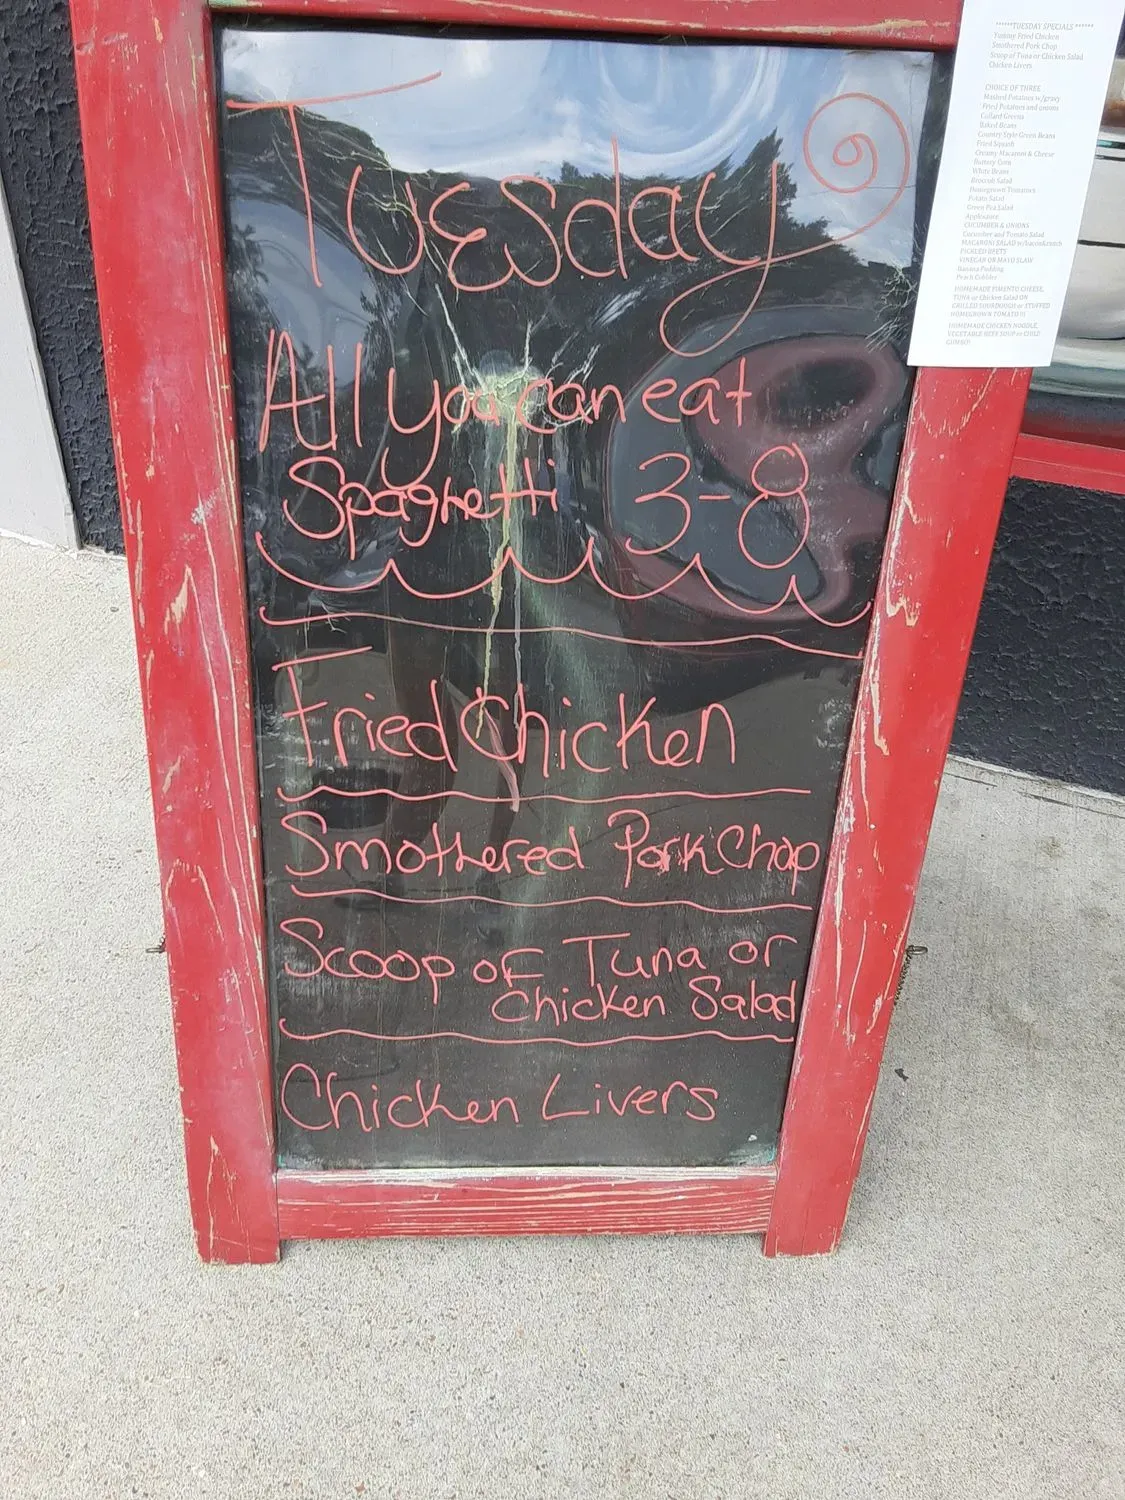 Tuesday
All you can eat
Spaghetti 3-8
Fried Chicken
Smothered Pork Chop
Scoop of Tuna or
Chicken Salad
Chicken Livers
******TUESDAY SPECIALS ******
Yummy Fried Chicken
Smothered Pork Chop
Scoop of Tuna or Chicken Salad
Chicken Livers
CHOICE OF THREE
Mashed Potatoes w/gravy
Fried Potatoes and onions
Collard Greens
Baked Beans
Country Style Green Beans
Fried Squash
Creamy Macaroni & Cheese
Buttery Corn
White Beans
Broccoli Salad
Homegrown Tomatoes
Potato Salad
Green Pea Salad
Applesauce
CUCUMBER & ONIONS
Cucumber and Tomato Salad
MACARONI SALAD w/bacon&ranch
PICKLED BEETS
VINEGAR OR MAYO SLAW
Banana Pudding
Peach Cobbler
HOMEMADE PIMENTO CHEESE,
TUNA or Chicken Salad ON
GRILLED SOURDOUGH or STUFFED
HOMEGROWN TOMATO!!!
HOMEMADE CHICKEN NOODLE,
VEGETABLE BEEF SOUP or CHILI
GUMBO!